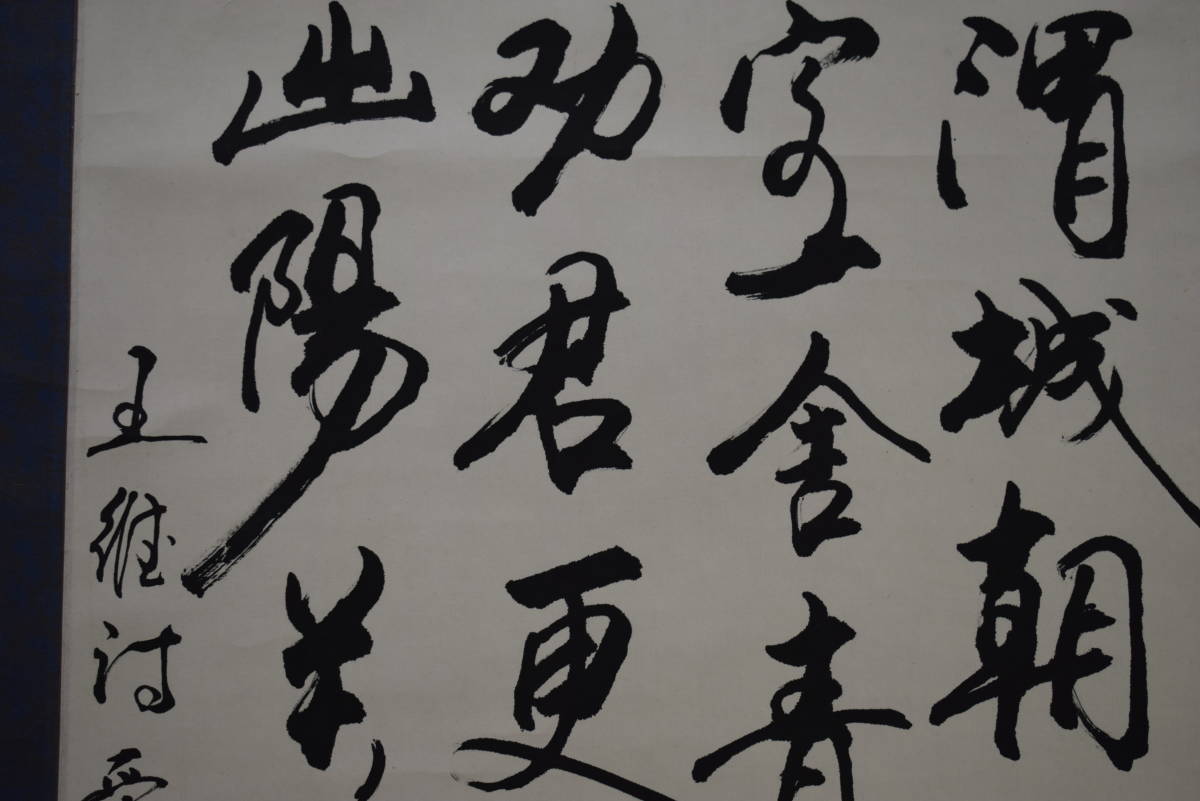 渭城朝
客舍青
劝君更
出陽关
王維詩